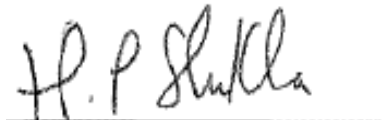 H. P Shukla